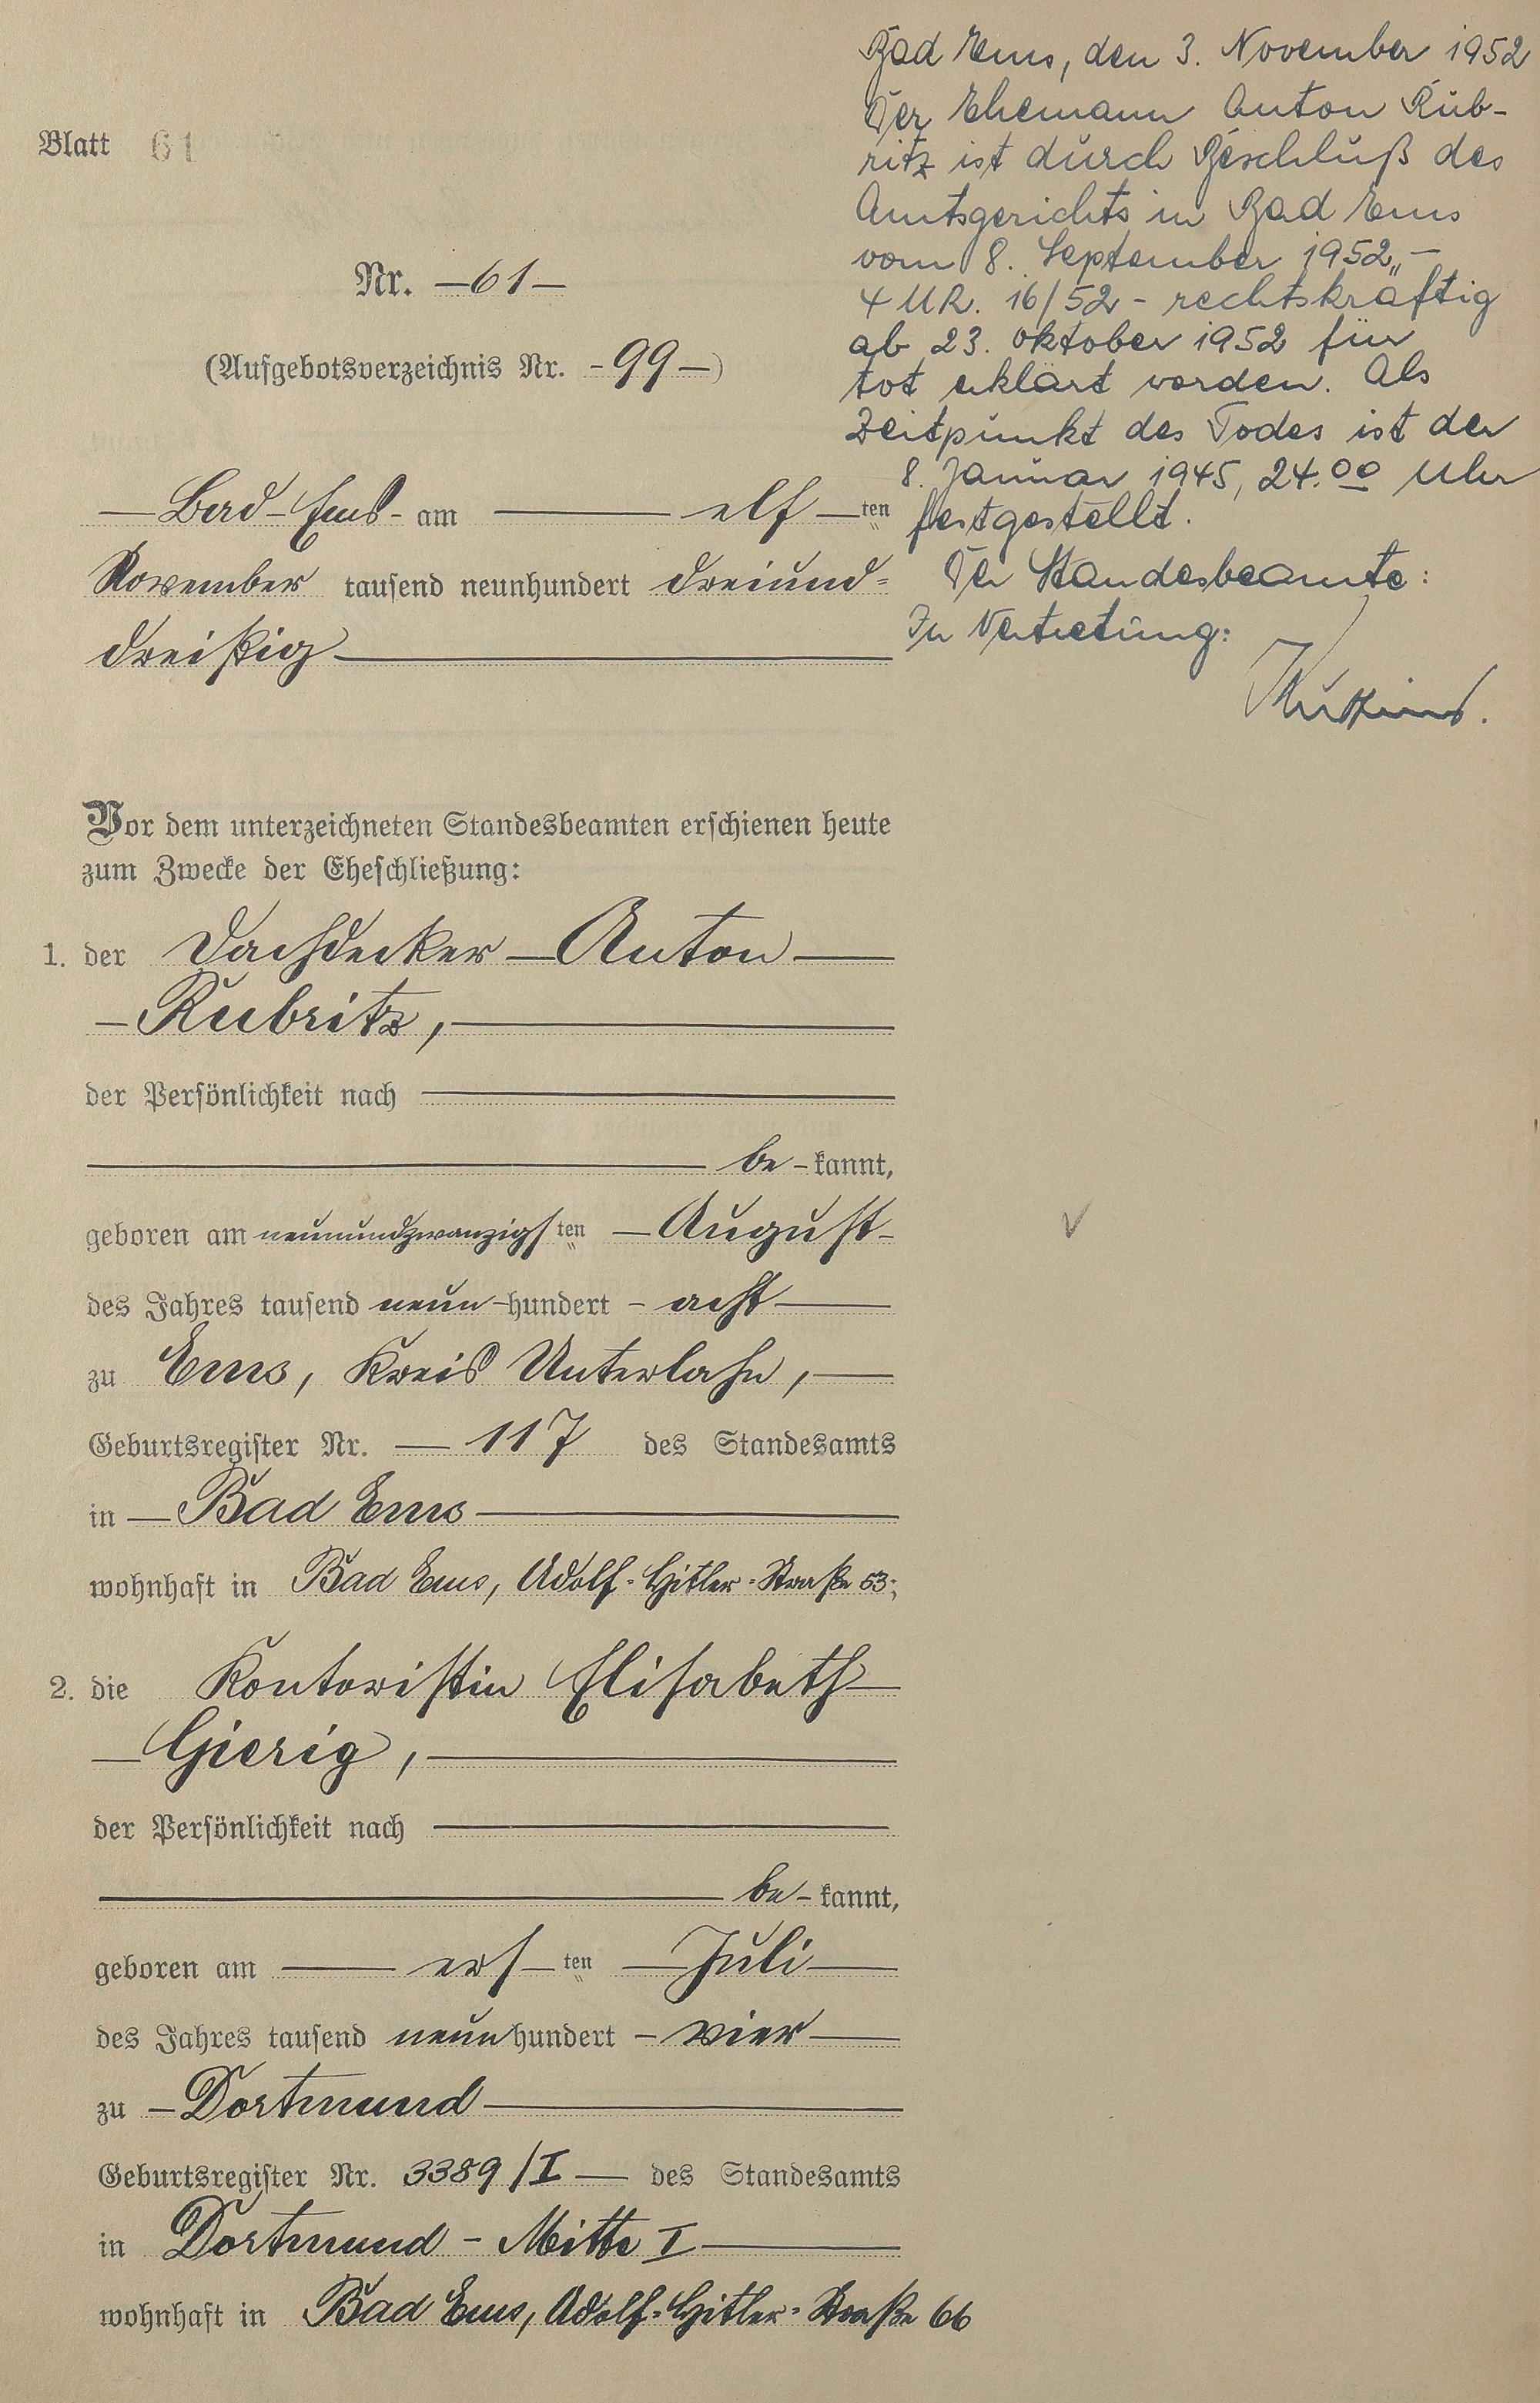 Blatt 61
Nr. —61—
(Aufgebotsverzeichnis Nr. -99-)
—Bad-Ems- am — elf —ten
November tausend neunhundert dreiund=
dreißig—
Bad Ems, den 3. November 1952
Der Ehemann Anton Rub-
ritz ist durch Beschluß des
Amtsgerichts in Bad Ems
vom 8. September 1952 „—
4 UR. 16/52 - rechtskräftig
ab 23. Oktober 1952 für
tot erklärt worden. Als
Zeitpunkt des Todes ist der
8. Januar 1945, 24.00 Uhr
festgestellt.
Der Standesbeamte:
In Vertretung:
Vor dem unterzeichneten Standesbeamten erschienen heute
zum Zwecke der Eheschließung:
1. der Dachdecker — Anton —
— Rubritz, —
der Persönlichkeit nach —
— be - kannt,
geboren am neunundzwanzigsten — August -
des Jahres tausend neun - hundert - acht —
zu Ems, Kreis Unterlahn, —
Geburtsregister Nr. — 117 des Standesamts
in — Bad Ems —
wohnhaft in Bad Ems, Adolf=Hitler=Straße 53;
2. die Kontoristin Elisabeth —
— Gierig, —
der Persönlichkeit nach —
— be - kannt,
geboren am — ers — ten — Juli —
des Jahres tausend neun hundert - vier —
zu — Dortmund —
Geburtsregister Nr. 3389/I — des Standesamts
in Dortmund - Mitte I —
wohnhaft in Bad Ems, Adolf=Hitler=Straße 66